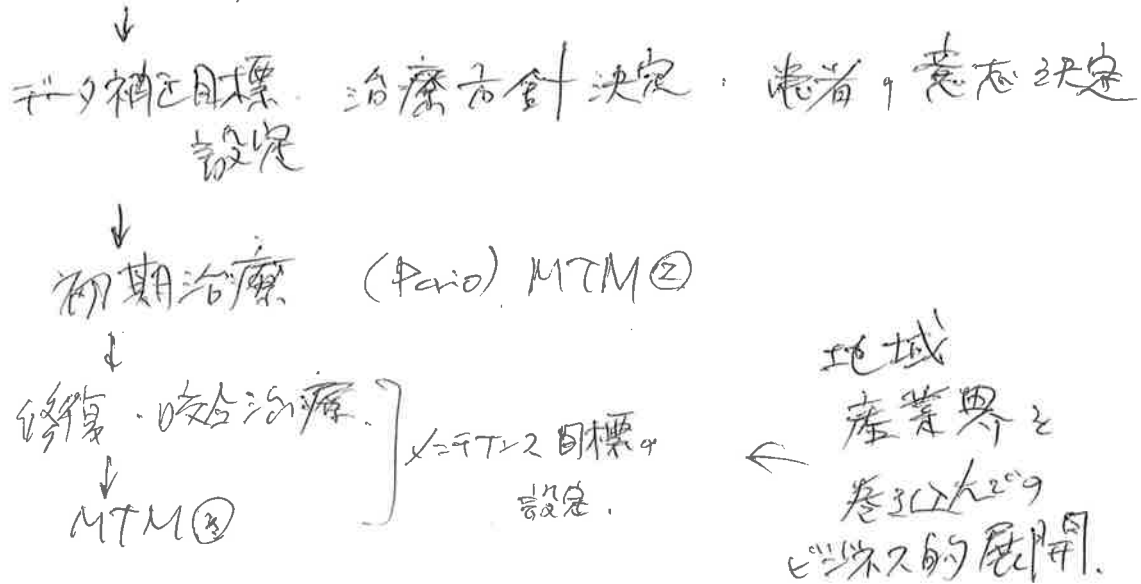 ↓
データ補正目標 治療方針決定・患者の意志決定
設定
↓
初期治療 (Perio) MTM②
↓
修復・咬合治療.
↓
MTM③
メンテナンス目標の
設定.
←
地域
産業界を
巻き込んでの
ビジネス的展開.